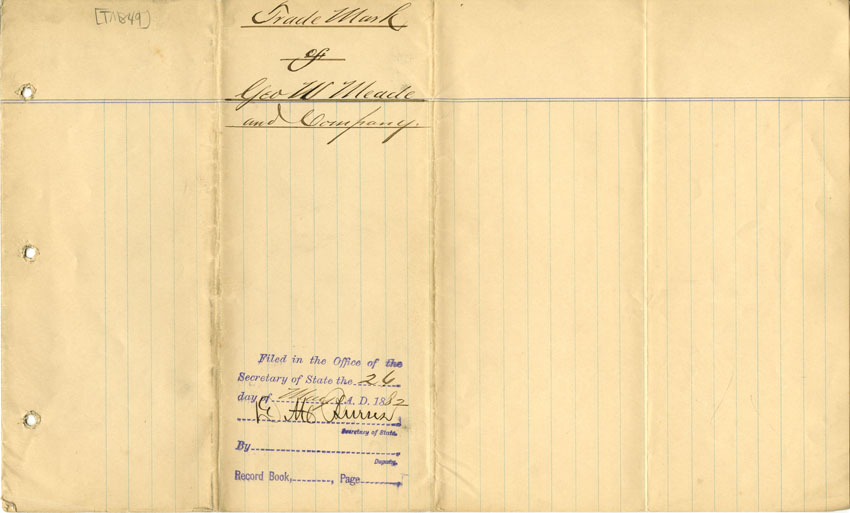 [TM849]
Trade Mark
of
Geo W Meade
and Company.
Filed in the Office of the
Secretary of State the 26
day of A. D. 1882
Burns
Secretary of State.
By
Deputy.
Record Book, , Page